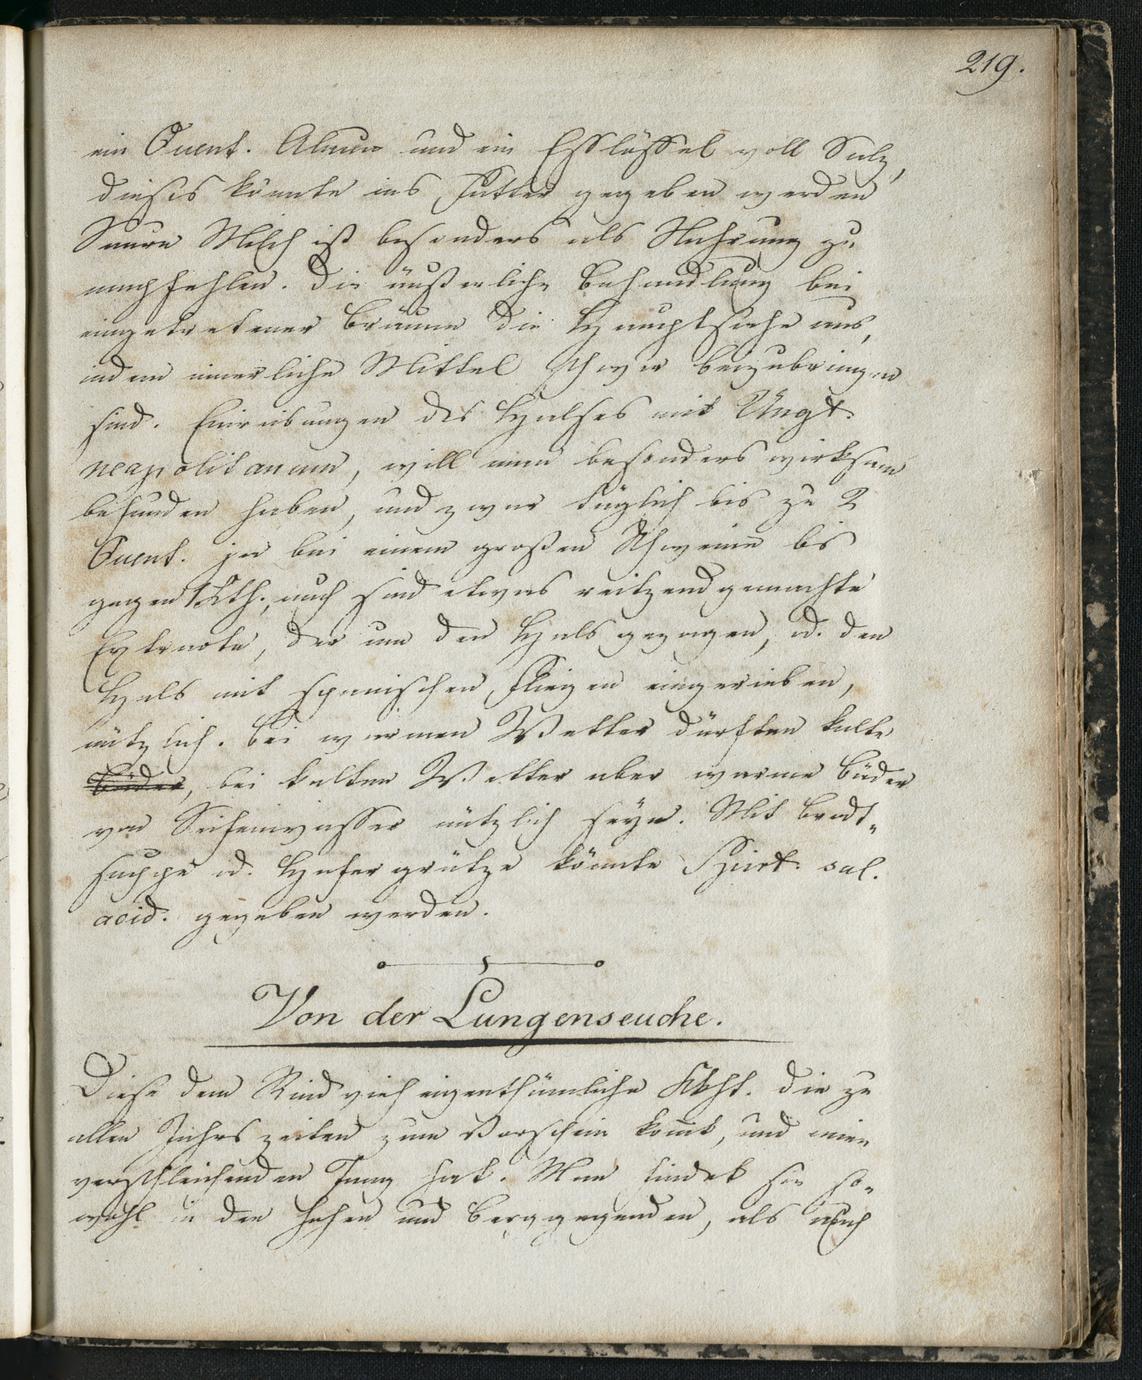 219.
ein Quent. Alaun und ein Esslössel voll Salz,
dieses könnte ins Futter gegeben werden
Saure Milch ist besonders als Nahrung zu
empfehlen. Die äußerliche Behandlung bei
eingetretener Bräune die Hauptsache aus,
indem innerliche Mittel schwer beizubringen
sind. Einreibungen des Halses mit Ungt.
neapolitanum, will man besonders wirksam
befunden haben, und zwar täglich bis zu 2
Quent. ja bei einem großen Schweine bis
gegen 1 Lth., auch sind etwas reitzend gemachte
der um den Hals gezogen, od. den
Hals mit spanischen Fliegen eingerieben,
nützlich. Bei warmen Wetter dürften kalte
Bäder, bei kalten Wetter aber warme Bäder
von Seifenwasser nützlich seyn. Mit Brodt„
suppe od. Hafergrütze könnte Spirt. sal.
acid. gegeben werden.
Von der Lungenseuche.
Diese dem Rindvieh eigenthümliche Kkht. die zu
allen Jahrszeiten zum Vorschein komt, und einen
verschleichenden Gang hat. Man findet sie so„
wohl in den hohen und Berggegenden, als auch